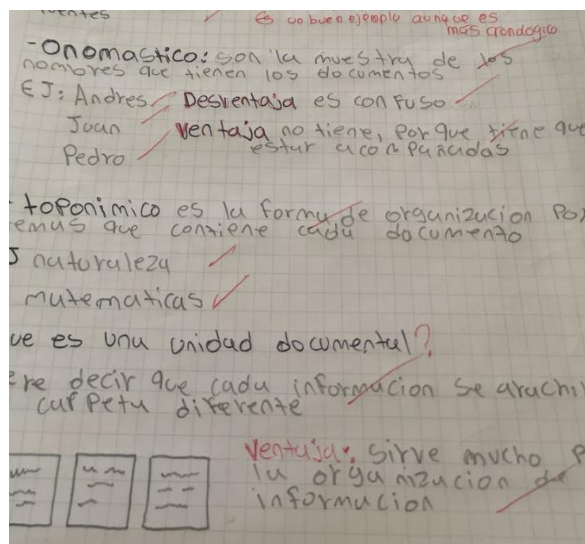 es un buen ejemplo aunque es
más cronologico
-Onomastico: son la muestra de los
nombres que tienen los documentos
EJ: Andres Desventaja es confuso
Juan Ventaja no tiene, porque tiene que
Pedro estar acompañadas
- toponimico es la forma de organizacion Por
emas que contiene cada documento
J naturaleza
matematicas
ue es una unidad documental?
ere decir que cada informacion se arachi
carpeta diferente
Ventaja: sirve mucho P
la organizacion de
informacion